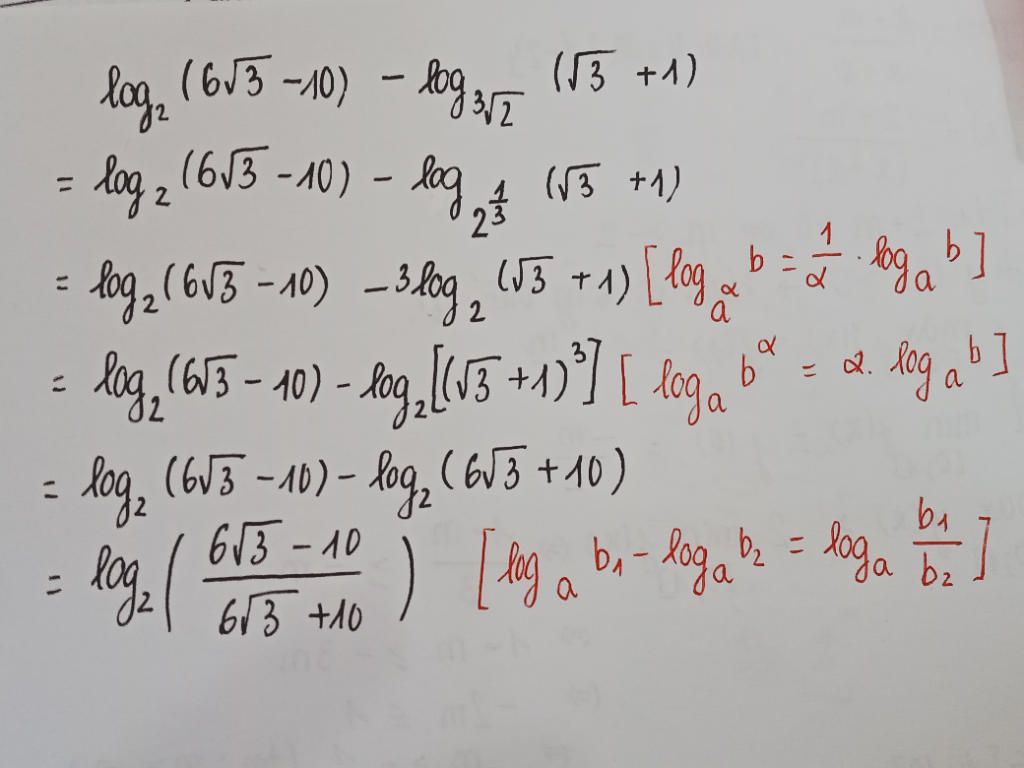 log₂ (6√3 - 10) - log_{³√2} (√3 + 1)
= log₂ (6√3 - 10) - log_{2^{1/3}} (√3 + 1)
= log₂ (6√3 - 10) - 3log₂ (√3 + 1) [log_{a^α} b = 1/α · log_a b]
= log₂ (6√3 - 10) - log₂ [(√3 + 1)³] [log_a b^α = α. log_a b]
= log₂ (6√3 - 10) - log₂ (6√3 + 10)
= log₂ ((6√3 - 10)/(6√3 + 10)) [log_a b₁ - log_a b₂ = log_a b₁/b₂]